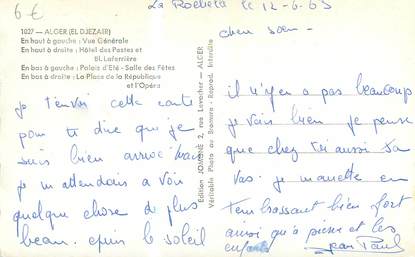 6 €
La le 12-6-63
1027 — ALGER (EL DJEZAIR)
En haut à gauche : Vue Générale
En haut à droite : Hôtel des Postes et
Bl. Laferrière
En bas à gauche : Palais d'Eté - Salle des Fêtes
En bas à droite : La Place de la République
et l'Opéra
je t'envoi cette carte
pour te dire que je
suis bien arrivé mais
je m'attendais a voir
quelque chose de plus
beau. epuis le soleil
Edition JOMONE 2, rue Lavoisier — ALGER
Véritable Photo au Bromure - Reprod. Interdite
cher
il n'y en a pas beaucoup
je vais bien je pense
que chez toi aussi sa
vas. je m'arrette en
t'embrassant bien fort
ainsi qu'a pierre et les
enfants Jean Paul